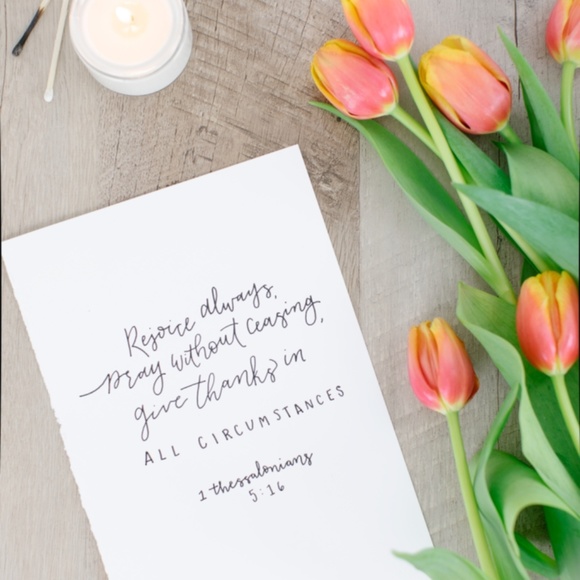 Rejoice always,
pray without ceasing,
give thanks in
ALL CIRCUMSTANCES
1 thessalonians
5:16